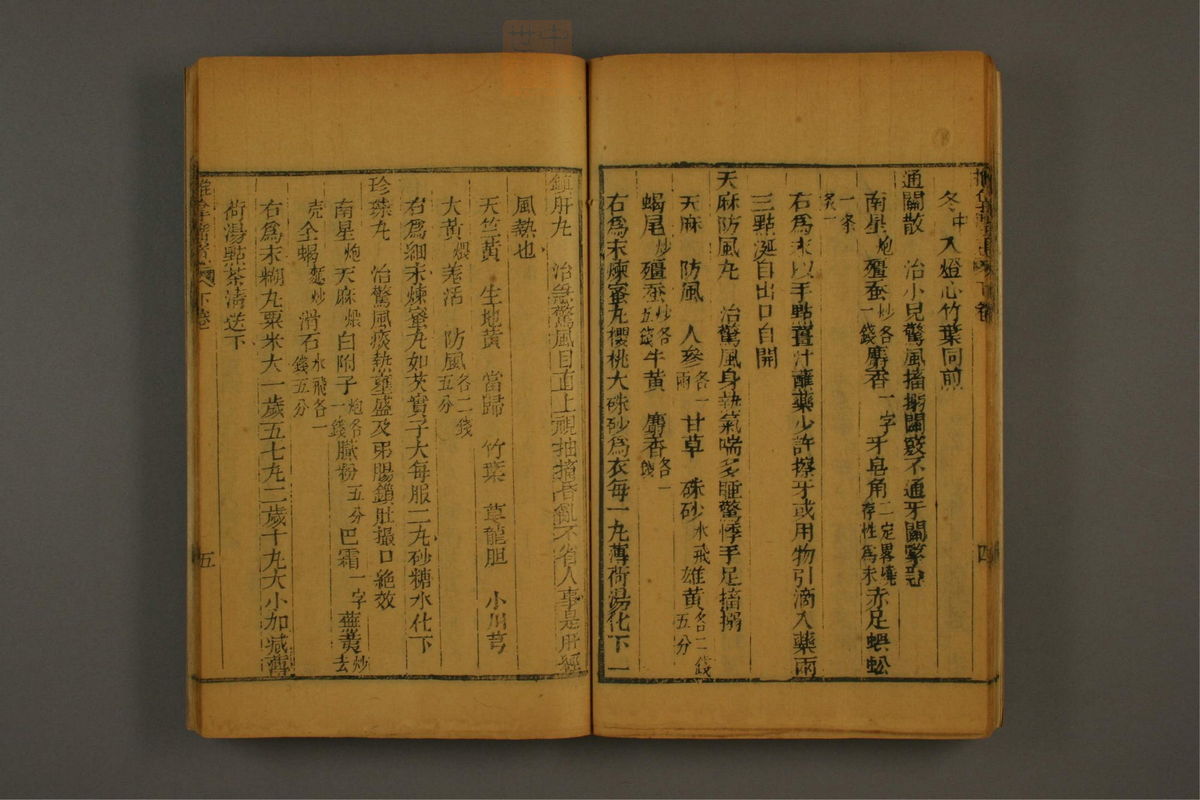 冬中入燈心竹葉同煎
通關散 治小兒驚風搐搦關竅不通牙關緊
南星炮殭蚕炒各一錢麝香一字牙皂角二定畧燒存性為末赤足蜈蚣
一条炙
右為末以手點薑汁蘸藥少許擦牙或用物引滴入藥兩
三點涎自出口自開
天麻防風丸 治驚風身熱氣喘多睡驚悸手足搐搦
天麻 防風 人參各一兩甘草 硃砂水飛雄黃各二錢五分
蝎尾炒殭蚕炒各五錢牛黃 麝香各一錢
右為末煉蜜丸櫻桃大硃砂為衣每一丸薄荷湯化下一
四
鎮肝丸 治急驚風目直上視抽搐昏亂不省人事是肝經
風熱也
天竺黃 生地黃 當歸 竹葉 草龍胆 小川芎
大黃煨羌活 防風各二錢五分
右為細末煉蜜丸如芡實子大每服二丸砂糖水化下
珍珠丸 治驚風痰熱壅盛及弔腸鎖肚撮口絶效
南星炮天麻煨白附子炮各一錢膩粉五分巴霜一字蕪荑炒去
殼全蝎麩炒滑石水飛各一錢五分
右為末糊丸粟米大一歲五七丸二歲十丸大小加减薄
荷湯點茶清送下
下卷
五